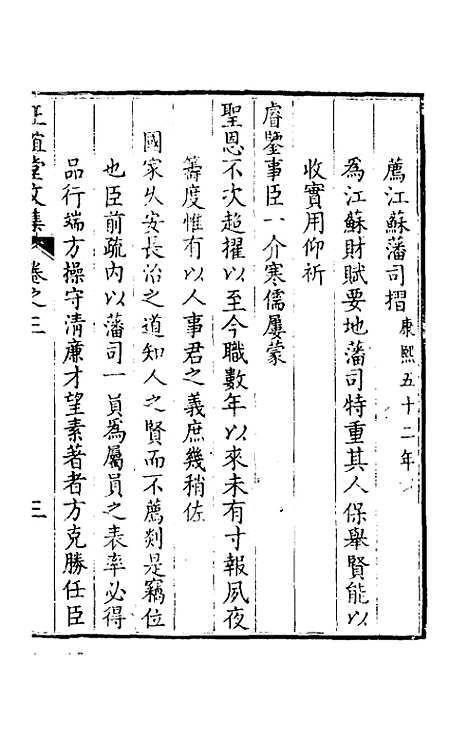 薦江蘇藩司摺康熙五十二年
為江蘇財賦要地藩司特重其人保舉賢能以
收實用仰祈
睿鑒事臣一介寒儒屢蒙
聖恩不次超擢以至今職數年以來未有寸報夙夜
籌度惟有以人事君之義庶幾稍佐
國家久安長治之道知人之賢而不薦剡是竊位
也臣前疏內以藩司一員為屬員之表率必得
品行端方操守清廉才望素著者方克勝任臣
正誼堂文集 卷之三 三